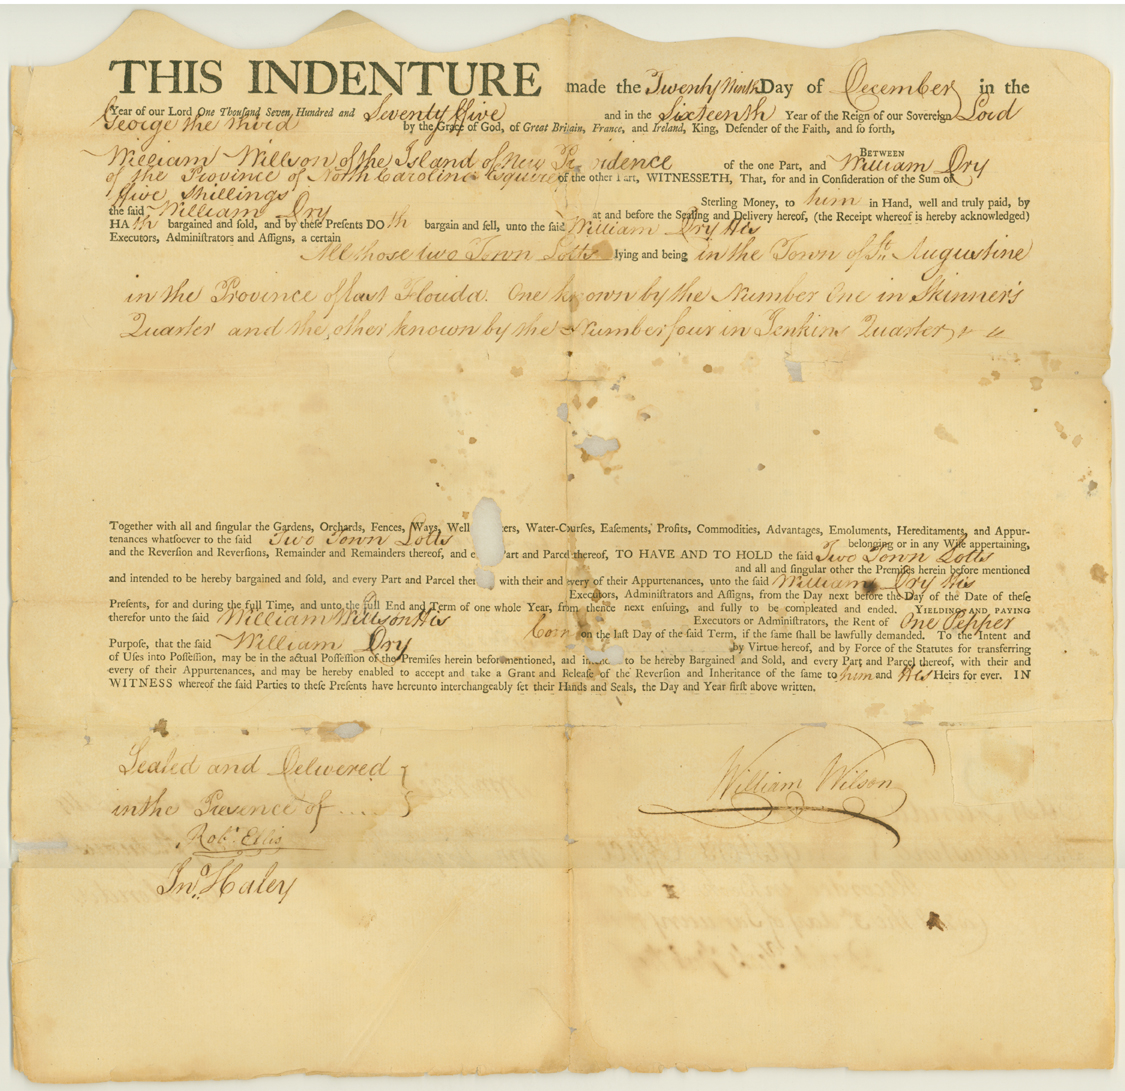 THIS INDENTURE made the Twenty Ninth Day of December in the
Year of our Lord One Thousand Seven Hundred and Seventy ffive and in the Sixteenth Year of the Reign of our Sovereign Lord
George the third by the Grace of God, of Great Britain, France, and Ireland, King, Defender of the Faith, and so forth,
BETWEEN
William Willson of the Island of New Providence of the one Part, and William Dry
of the Province of North Carolina Esquire of the other Part, WITNESSETH, That, for and in Consideration of the Sum of
ffive Shillings Sterling Money, to him in Hand, well and truly paid, by
the said William Dry at and before the Sealing and Delivery hereof, (the Receipt whereof is hereby acknowledged)
HAth bargained and sold, and by these Presents DOth bargain and sell, unto the said William Dry His
Executors, Administrators and Assigns, a certain
All those two Town Lotts lying and being in the Town of St. Augustine
in the Province of East Florida. One known by the Number One in Skinner's
Quarter and the other known by the Number four in Jenkins Quarter
Together with all and singular the Gardens, Orchards, Fences, Ways, Well ers, Water-Courses, Easements, Profits, Commodities, Advantages, Emoluments, Hereditaments, and Appur-
tenances whatsoever to the said Two Town Lotts belonging or in any Wise appertaining,
and the Reversion and Reversions, Remainder and Remainders thereof, and e Part and Parcel thereof, TO HAVE AND TO HOLD the said Two Town Lotts
and all and singular other the Premises herein before mentioned
and intended to be hereby bargained and sold, and every Part and Parcel ther with their and every of their Appurtenances, unto the said William Dry His
Executors, Administrators and Assigns, from the Day next before the Day of the Date of these
Presents, for and during the full Time, and unto the full End and Term of one whole Year, from thence next ensuing, and fully to be compleated and ended. YIELDING AND PAYING
therefor unto the said William Willson His Executors or Administrators, the Rent of One Pepper
Corn on the last Day of the said Term, if the same shall be lawfully demanded. To the Intent and
Purpose, that the said William Dry by Virtue hereof, and by Force of the Statutes for transferring
of Uses into Possession, may be in the actual Possession of the Premises herein before mentioned, and intended to be hereby Bargained and Sold, and every Part and Parcel thereof, with their and
every of their Appurtenances, and may be hereby enabled to accept and take a Grant and Release of the Reversion and Inheritance of the same to him and His Heirs for ever. IN
WITNESS whereof the said Parties to these Presents have hereunto interchangeably set their Hands and Seals, the Day and Year first above written.
Sealed and Delivered
in the Presence of ....
William Wilson
Robt. Ellis
Jno. Haley